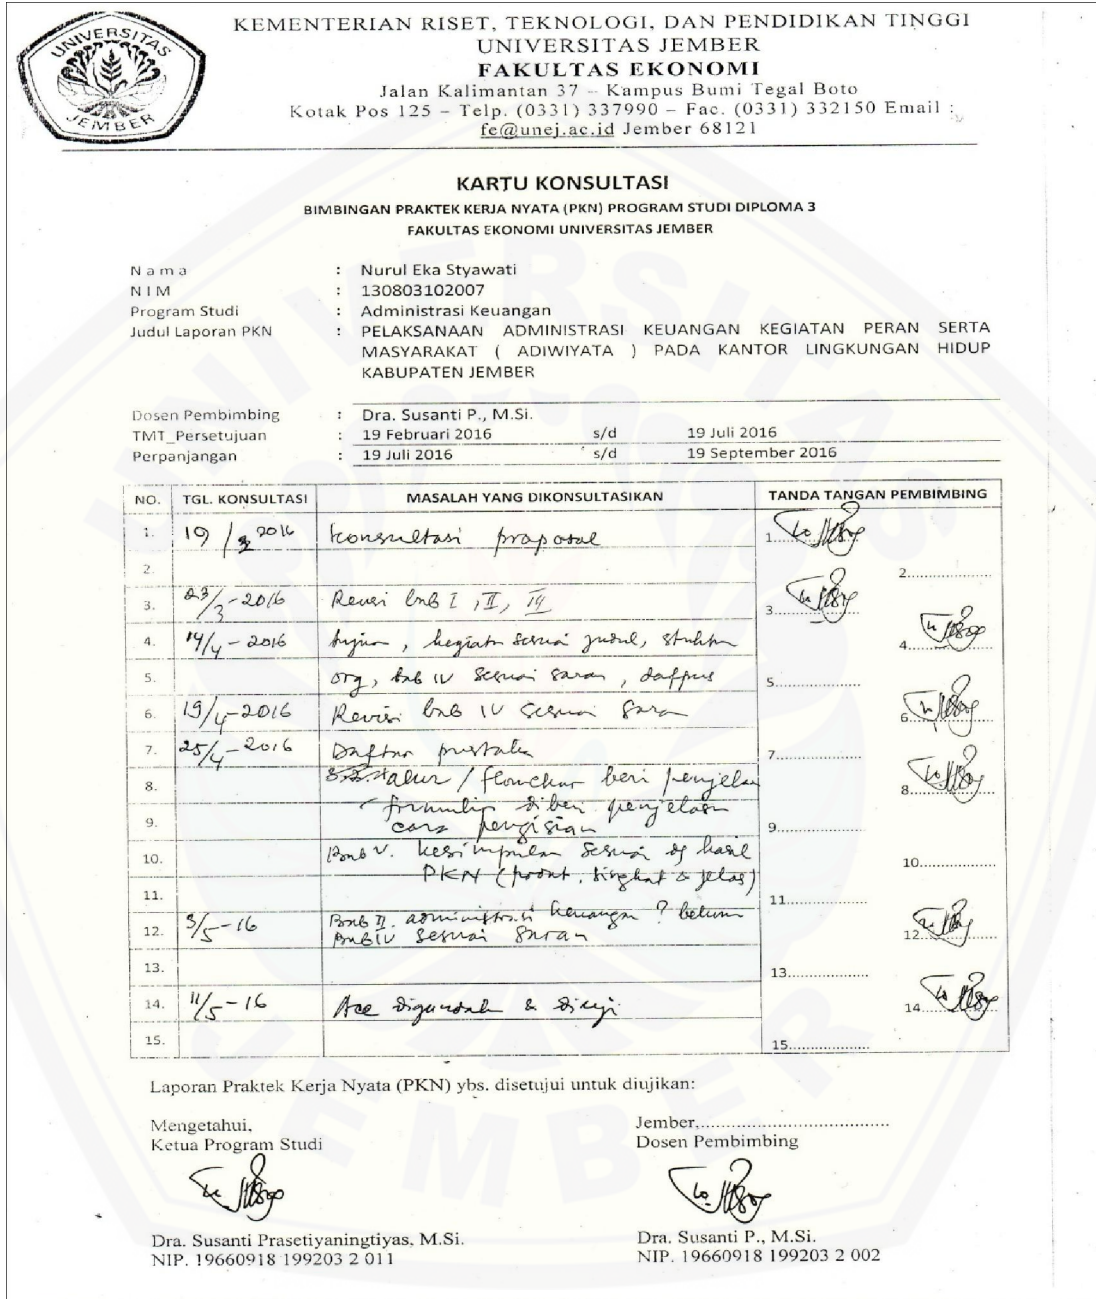 UNIVERSITAS
JEMBER
KEMENTERIAN RISET, TEKNOLOGI, DAN PENDIDIKAN TINGGI
UNIVERSITAS JEMBER
FAKULTAS EKONOMI
Jalan Kalimantan 37 – Kampus Bumi Tegal Boto
Kotak Pos 125 – Telp. (0331) 337990 – Fac. (0331) 332150 Email :
fe@unej.ac.id Jember 68121
KARTU KONSULTASI
BIMBINGAN PRAKTEK KERJA NYATA (PKN) PROGRAM STUDI DIPLOMA 3
FAKULTAS EKONOMI UNIVERSITAS JEMBER
N a m a : Nurul Eka Styawati
N I M : 130803102007
Program Studi : Administrasi Keuangan
Judul Laporan PKN : PELAKSANAAN ADMINISTRASI KEUANGAN KEGIATAN PERAN SERTA
MASYARAKAT ( ADIWIYATA ) PADA KANTOR LINGKUNGAN HIDUP
KABUPATEN JEMBER
Dosen Pembimbing : Dra. Susanti P., M.Si.
TMT_Persetujuan : 19 Februari 2016 s/d 19 Juli 2016
Perpanjangan : 19 Juli 2016 s/d 19 September 2016
NO. TGL. KONSULTASI MASALAH YANG DIKONSULTASIKAN TANDA TANGAN PEMBIMBING
1. 19/3 2016 konsultasi proposal 1..........
2. 2..........
3. 23/3-2016 Revisi bab I, II, 3..........
4. 14/4-2016 tujuan, kegiatan sesuai judul, struktur 4..........
5. org, bab IV sesuai saran, dafpus 5..........
6. 19/4-2016 Revisi bab IV sesuai saran 6..........
7. 25/4-2016 Daftar pustaka 7..........
8. alur / flowchar beri penjelasan 8..........
formulir diberi penjelasan
9. cara pengisian 9..........
10. Bab V. kesimpulan sesuai dg hasil 10..........
PKN (point, singkat & jelas)
11. 11..........
12. 3/5-16 Bab II. administrasi keuangan ? belum 12..........
Bab IV sesuai saran
13. 13..........
14. 11/5-16 Acc digandakan & diuji 14..........
15. 15..........
Laporan Praktek Kerja Nyata (PKN) ybs. disetujui untuk diujikan:
Mengetahui, Jember,..........
Ketua Program Studi Dosen Pembimbing
Dra. Susanti Prasetiyaningtiyas, M.Si. Dra. Susanti P., M.Si.
NIP. 19660918 199203 2 011 NIP. 19660918 199203 2 002